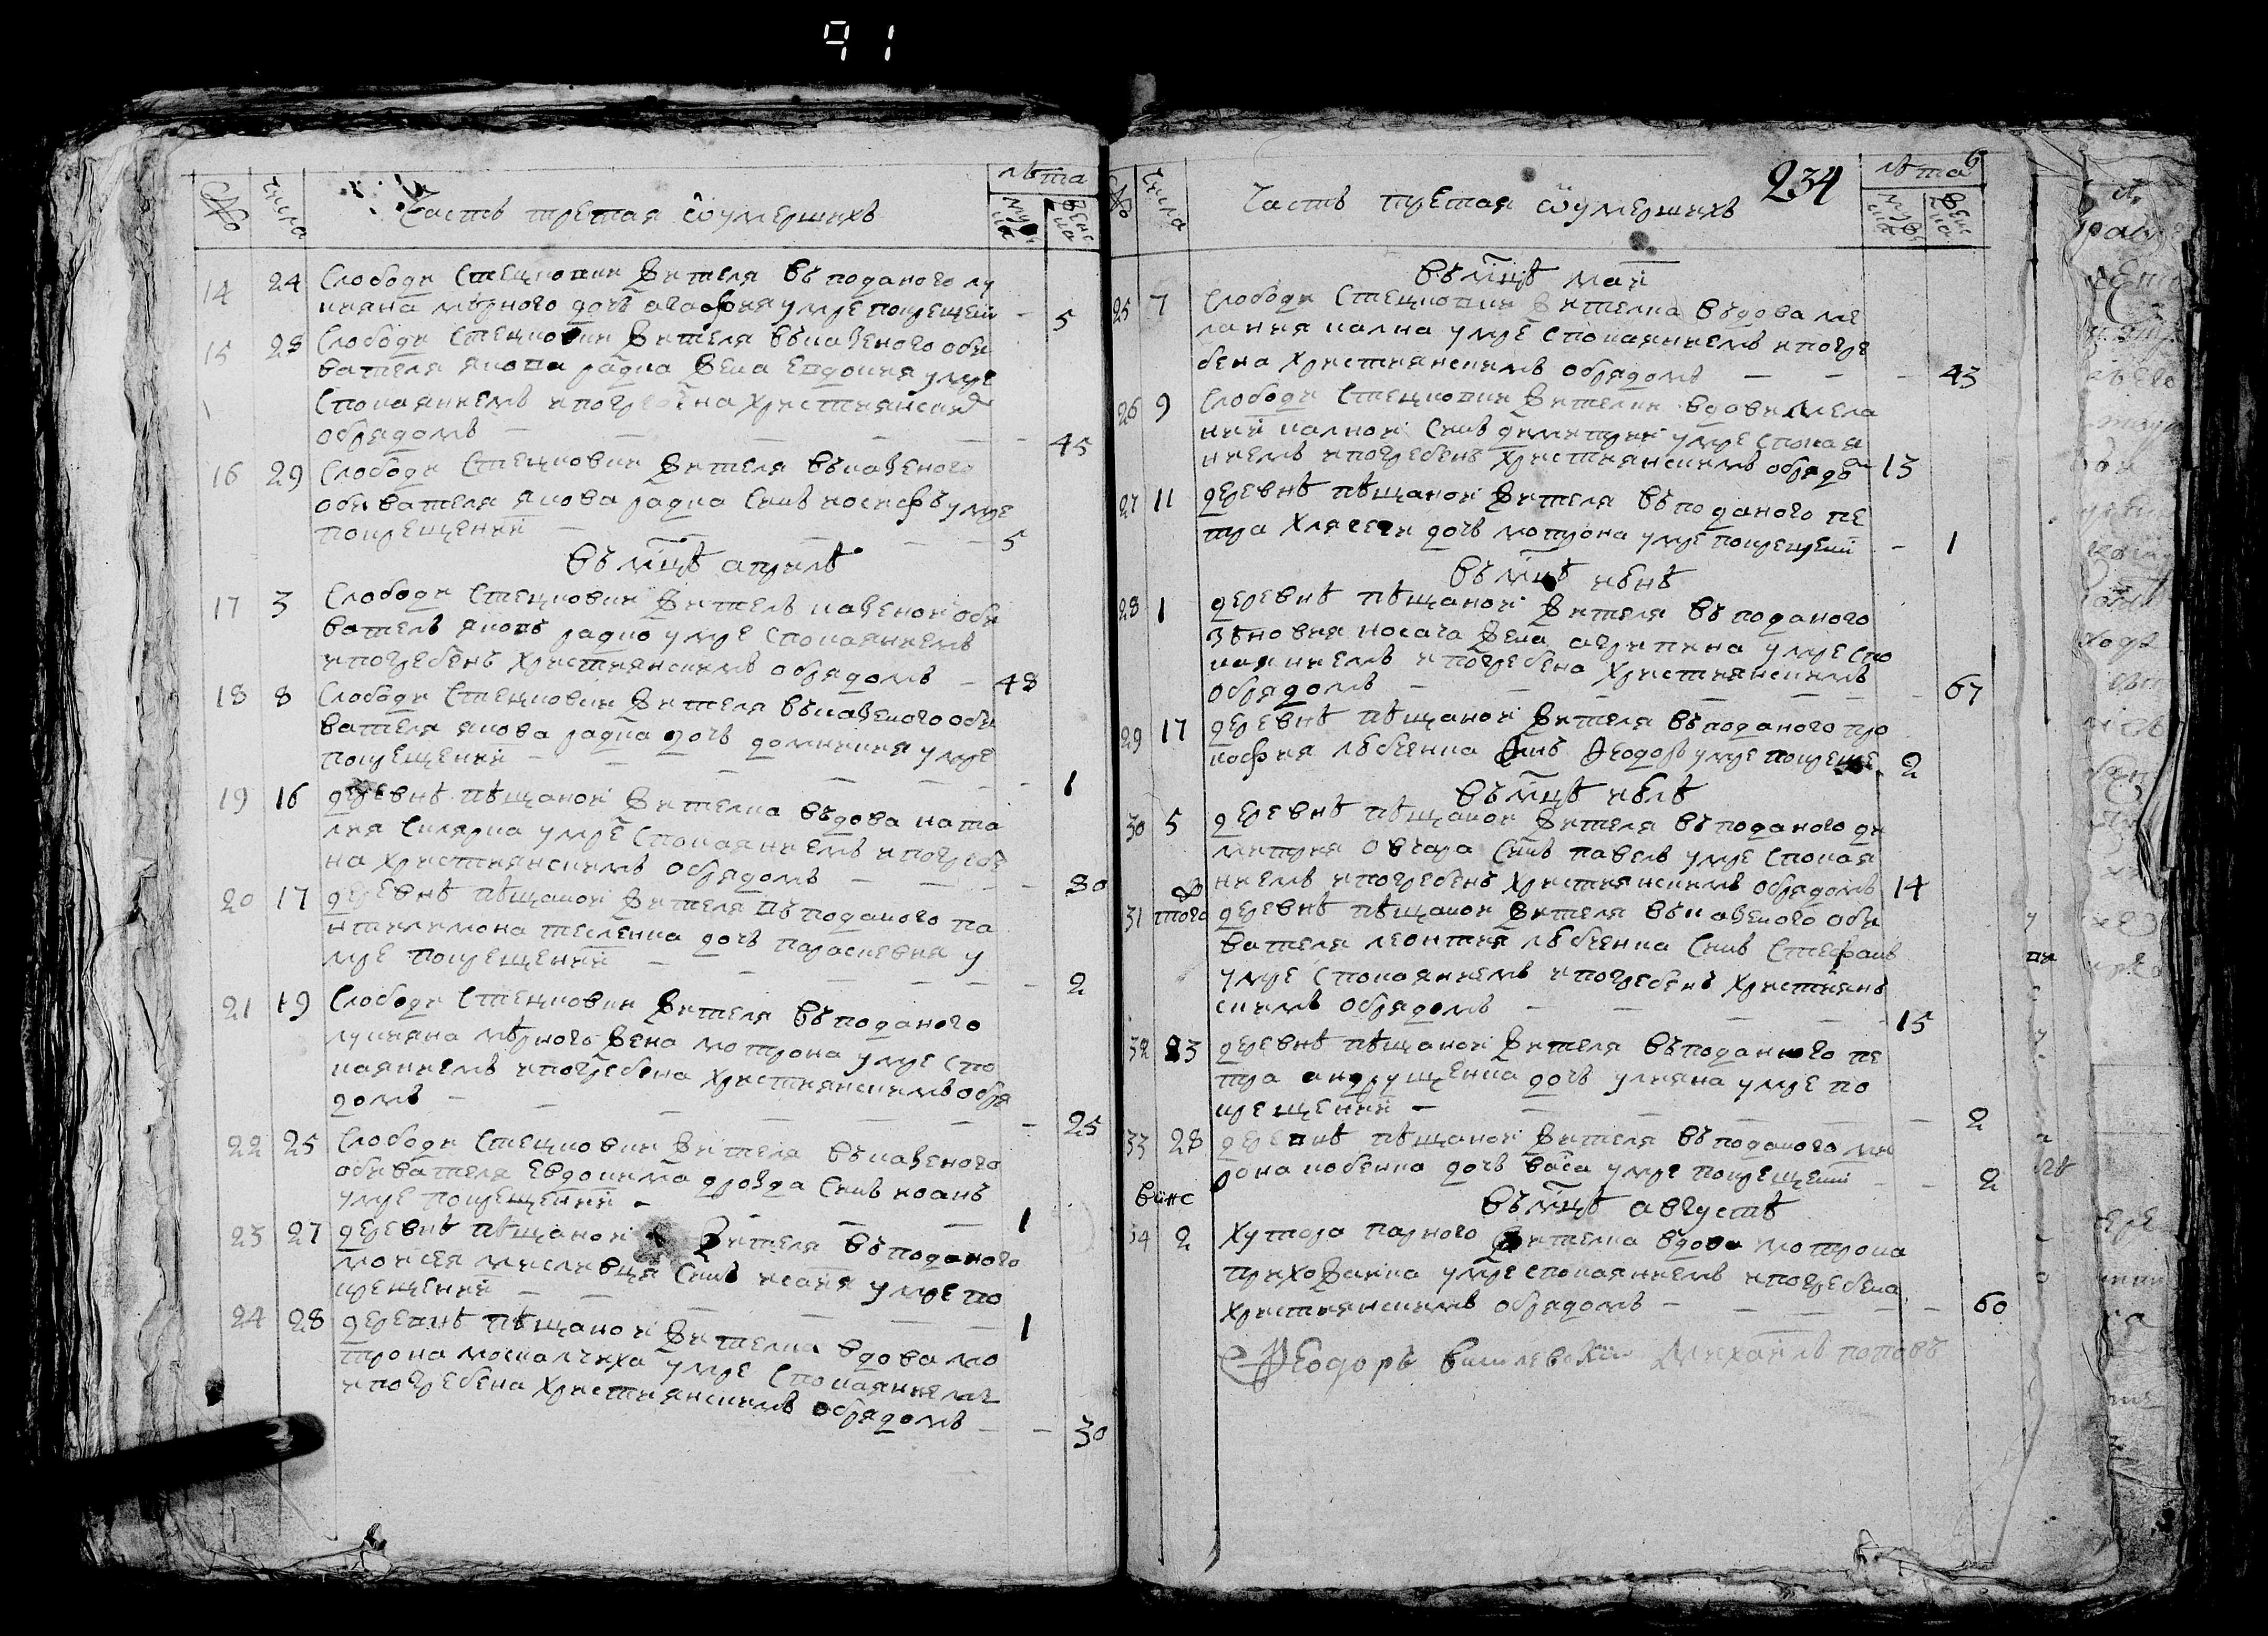 91
№ числа Часть третая ѿ умершихъ лѣта
14 24 Слободи Стецковки жителя въ поданого лу
кияна мѣрного дочъ агафия умре покрещен - 5
15 28 Слободи Стецковки жителя въ казеного оби
вателя якова радка жена Евдокия умре
Спокаяниемъ и погребена християнски
обрядомъ - 45
16 29 Слободи Стецковки жителя въ казеного
обивателя якова радка Синъ иосифъ умре
покрещений - 5
Въ мцѣ априлѣ
17 3 Слободи Стецковки житель казеной оби
ватель яковъ радко умре Спокаяниемъ
и погребенъ християнскимъ обрядомъ - 48
18 8 Слободи Стецковки жителя въ казеного оби
вателя якова радка дочъ домникия умре
покрещений - 1
19 16 деревнѣ пѣщаной жителка въдова ната
лия Склярка умре Спокаяниемъ и погребе
на християнскимъ обрядомъ - 80
20 17 деревнѣ пѣщаной жителя въ поданого па
нтилимона тесленка дочъ параскевия у
мре покрещений - 2
21 19 Слободи Стецковки жителя въ поданого
лукияна мѣрного жена мотрона умре Спо
каяниемъ и погребена християнскимъ обря
домъ - 25
22 25 Слободи Стецковки жителя въ казеного
обивателя Евдокима дрозда Синъ иоанъ
умре покрещений - 1
23 27 деревнѣ пѣщаной жителя въ поданого
моисея мисливця Синъ исаия умре по
крещений - 1
24 28 деревнѣ пѣщаной жителка вдова мо
трона москалчиха умре Спокаяниемъ
и погребена християнскимъ обрядомъ - 30
6
234
№ числа Часть третая ѿ умершихъ лѣта
Въ мцѣ маи
25 7 Слободи Стецковки жителка въдова ме
лания калка умре Спокаяниемъ и погре
бена християнскимъ обрядомъ - 43
26 9 Слободи Стецковки жителки вдови мела
нии калкои Синъ димитрий умре Спокая
ниемъ и погребенъ християнскимъ обрядо 13
27 11 деревнѣ пѣщаной жителя въ поданого пе
тра дочъ мотрона умре покрещении - 1
Въ мцѣ июнѣ
28 1 деревнѣ пѣщаной жителя въ поданого
зѣновия носача жена агрипина умре Спо
каяниемъ и погребена християнскимъ
обрядомъ - 67
29 17 деревнѣ пѣщаной жителя въ поданого про
кофия Синъ Ѳеодоръ умре покреще 2
Въ мцѣ июлѣ
30 5 деревнѣ пѣщаной жителя въ поданого ди
митрия овчара Синъ павелъ умре Спокая
ниемъ и погребенъ християнскимъ обрядомъ 14
31 того деревнѣ пѣщаной жителя въ казеного оби
вателя леонтия Синъ Стефанъ
умре Спокаяниемъ и погребенъ християнъ
скимъ обрядомъ - 15
32 23 деревнѣ пѣщаной жителя въ поданного пе
тра андрущенка дочъ улияна умре по
крещений - 2
33 28 деревнѣ пѣщаной жителя въ поданого ми
рона дочъ умре покрещений - 2
Въ мцѣ августѣ
34 2 Хутора парного жителка вдова мотрона
прихожанка умре спокаяниемъ и погребена
християнскимъ обрядомъ - 60
Ѳеодоръ Михаилъ поповъ